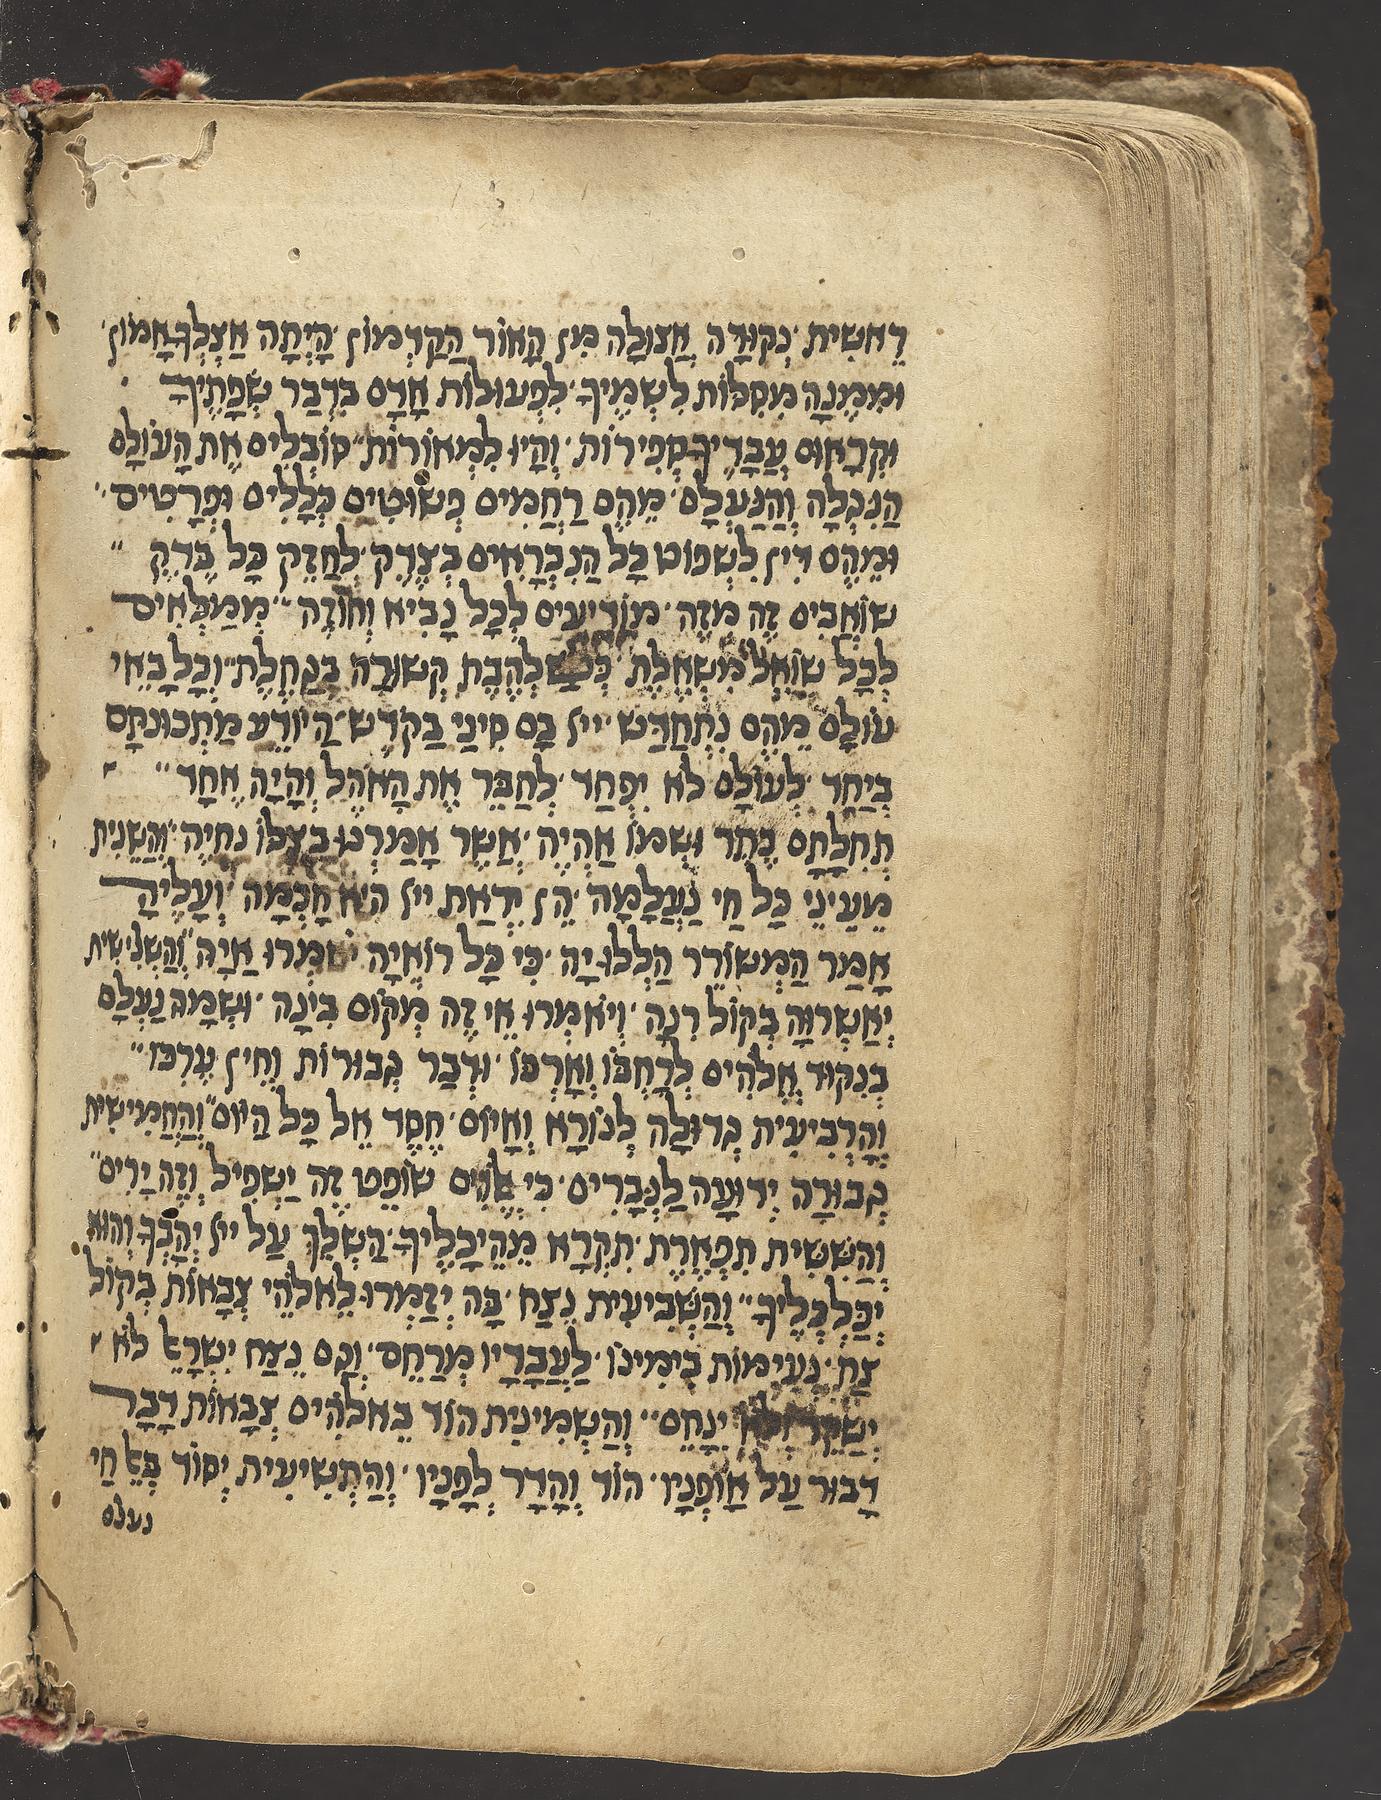 רֵאשִׁית נְקוּדָּה אֲצוּלָה מִן הָאוֹר הַקַּדְמוֹן הָיְתָה אֶצְלְךָ אָמוֹן
וּמִמֶּנָּה מְסִלּוֹת לִשְׁמֶיךָ לִפְעוּלוֹת אָדָם בִּדְבַר שְׂפָתֶיךָ
וּקְרָאוּם עֲבָדֶיךָ סְפִירוֹת וְהָיוּ לִמְאוֹרוֹת סוֹבְלִים אֶת הָעוֹלָם
הַנִּגְלָה וְהַנֶּעְלָם מֵהֶם רַחֲמִים פְּשׁוּטִים כְּלָלִים וּפְרָטִים
וּמֵהֶם דִּין לִשְׁפּוֹט כָּל הַנִּבְרָאִים בְּצֶדֶק לְחַזֵּק כָּל בֶּדֶק
שׁוֹאֲבִים זֶה מִזֶּה מוֹדִיעִים לְכָל נָבִיא וְחוֹזֶה מְמַלְּאִים
לְכָל שׁוֹאֵל מִשְׁאֶלֶת כְּשַׁלְהֶבֶת קְשׁוּרָה בְּגַחֶלֶת וְכָל בָּאֵי
עוֹלָם מֵהֶם נִתְחַדֵּשׁ ייי בָם סִינַי בַּקֹּדֶשׁ הַיּוֹדֵעַ מַתְכּוּנְתָּם
בְּיַחַד לְעוֹלָם לֹא יִפְחַד לְחַבֵּר אֶת הָאֹהֶל וְהָיָה אֶחָד
תְּחִלָּתָם כֶּתֶר וּשְׁמוֹ אֶהְיֶה אֲשֶׁר אָמַרְנוּ בְּצִלּוֹ נִחְיֶה וְהַשֵּׁנִית
מֵעֵינֵי כָל חַי נֶעֱלָמָה הֵן יִרְאַת ייי הִיא חָכְמָה וְעָלֶיהָ
אָמַר הַמְשׁוֹרֵר הַלְלוּיָהּ כִּי כָל רוֹאֶיהָ יֹאמְרוּ אַיֵּה וְהַשְּׁלִישִׁית
יְאַשְּׁרוּהָ בְּקוֹל רִנָּה וְיֹאמְרוּ אֵי זֶה מְקוֹם בִּינָה וּשְׁמָהּ נֶעְלָם
בְּנִקּוּד אֱלֹהִים לְרָחְבּוֹ וְאָרְכּוֹ וּדְבַר גְּבוּרוֹת וְחִין עֶרְכּוֹ
וְהָרְבִיעִית גְּדוּלָּה לְנוֹרָא וְאָיוֹם חֶסֶד אֵל כָּל הַיּוֹם וְהַחֲמִישִׁית
גְּבוּרָה יְדוּעָה לַגְּבָרִים כִּי אֱלֹהִים שׁוֹפֵט זֶה יַשְׁפִּיל וְזֶה יָרִים
וְהַשִּׁשִּׁית תִּפְאֶרֶת תִּקְרָא מֵהֵיכָלֶיךָ הַשְׁלֵךְ עַל ייי יְהָבְךָ וְהוּא
יְכַלְכְּלֶיךָ וְהַשְּׁבִיעִית נֵצַח בָּהּ יְזַמְּרוּ לֵאלֹהֵי צְבָאוֹת בְּקוֹל
צַח נְעִימוֹת בִּימִינוֹ לַעֲבָדָיו מְרַחֵם וְגַם נֵצַח יִשְׂרָאֵל לֹא
יְשַׁקֵּר וְלֹא יִנָּחֵם וְהַשְּׁמִינִית הוֹד בֵּאלֹהִים צְבָאוֹת דָּבָר
דָּבוּר עַל אוֹפָנָיו הוֹד וְהָדָר לְפָנָיו וְהַתְּשִׁיעִית יְסוֹד בְּאֵל חַי
נעלם